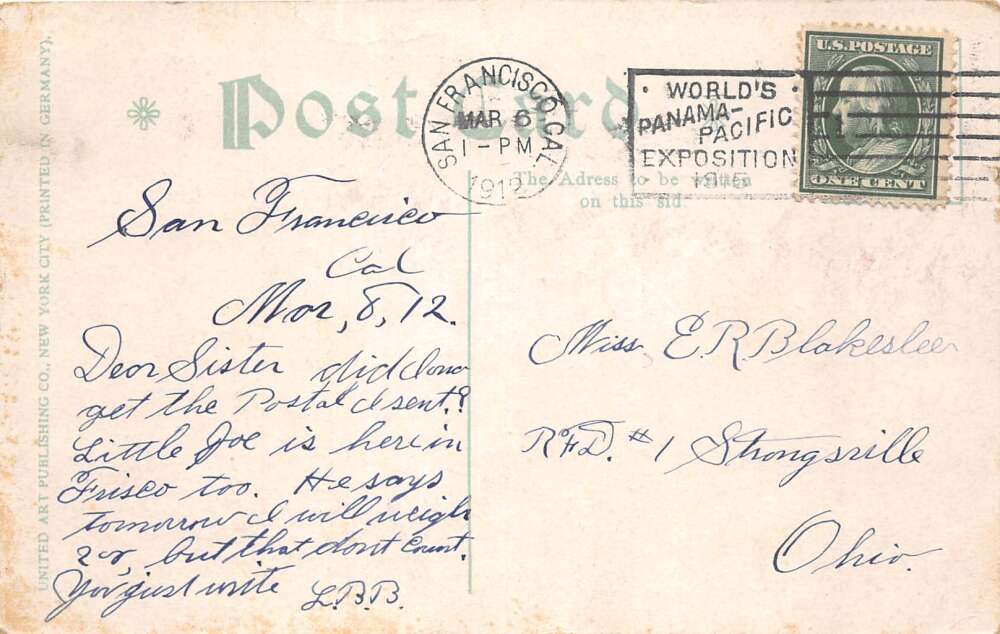 UNITED ART PUBLISHING CO., NEW YORK CITY (PRINTED IN GERMANY).
Post Card
SAN FRANCISCO, CAL.
MAR 6
1 - PM
1912
WORLD'S
PANAMA-
PACIFIC
EXPOSITION
1915
U.S. POSTAGE
ONE CENT
The Adress to be written
on this sid.
San Francisco
Cal
Mar, 8, 12.
Dear Sister did
get the Postal I sent?
Little Joe is here in
Frisco too. He says
tomorrow I will weigh
but that dont Count.
You just write
L.B.B.
Miss E R Blakeslee
R.F.D. #1 Strongsville
Ohio.